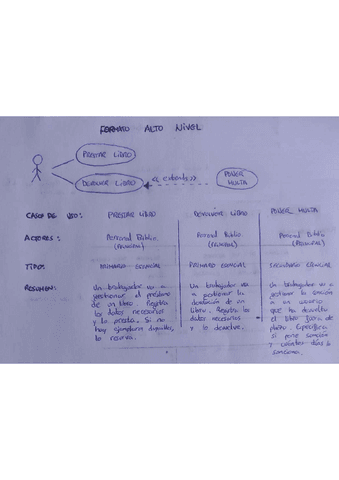 FORMATO ALTO NIVEL
PRESTAR LIBRO
DEVOLVER LIBRO
<< extends >>
PONER
MULTA
CASOS DE USO: PRESTAR LIBRO DEVOLVER LIBRO PONER MULTA
ACTORES: Personal Biblio Personal Biblio Personal Biblio
TIPO: PRIMARIO ESENCIAL PRIMARIO ESENCIAL SECUNDARIO ESENCIAL
RESUMEN: Un trabajador va a Un trabajador va Un trabajador va a
gestionar el préstamo a gestionar la gestionar la sanción
de un libro. Registra devolución de un a un usuario
los datos necesarios libro. Registra los que ha devuelto
y lo presta. Si no datos necesarios el libro fuera de
hay ejemplares y lo devuelve. plazo. Especifica
lo reserva. si pone sanción
y cuántos días